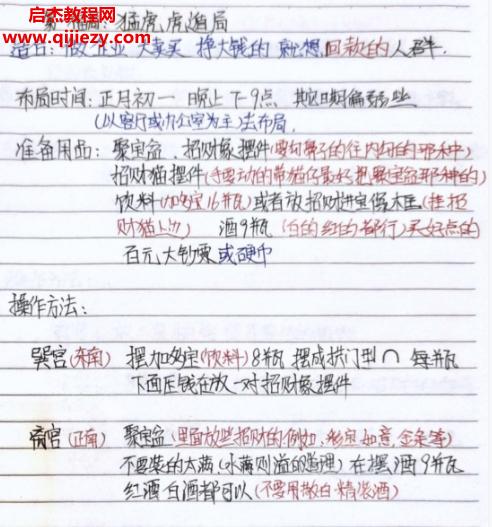 启杰教程网
www.qijiezy.com
猛虎虎啸局
适合:做企业 大卖买 挣大钱的 就想回款的人群.
布局时间:正月初一 晚上7-9点 其它日期偏弱些
(以客厅或办公室为主)去布局.
准备用品:聚宝盆.招财象摆件(要勾鼻子的往内勾的那种)
招财猫摆件(手要动的带猫仔最好把聚宝盆那种的)
饮料(加多宝16瓶)或有放招财进宝保大臣(挂招
财猫上边) 酒9瓶(白的红的都行)买好点的
百元大钞票或硬币
操作方法:
巽宫(东南) 摆加多宝(饮料)8瓶 摆成拱门型∩ 每瓶
下面压钱在放一对招财象摆件
离宫(正南) 聚宝盆(里面放些招财的例如,元宝如意,金条等)
不要装的太满(水满则溢的道理)在摆酒9瓶
红酒白酒都可以(不要用散白.精装酒)